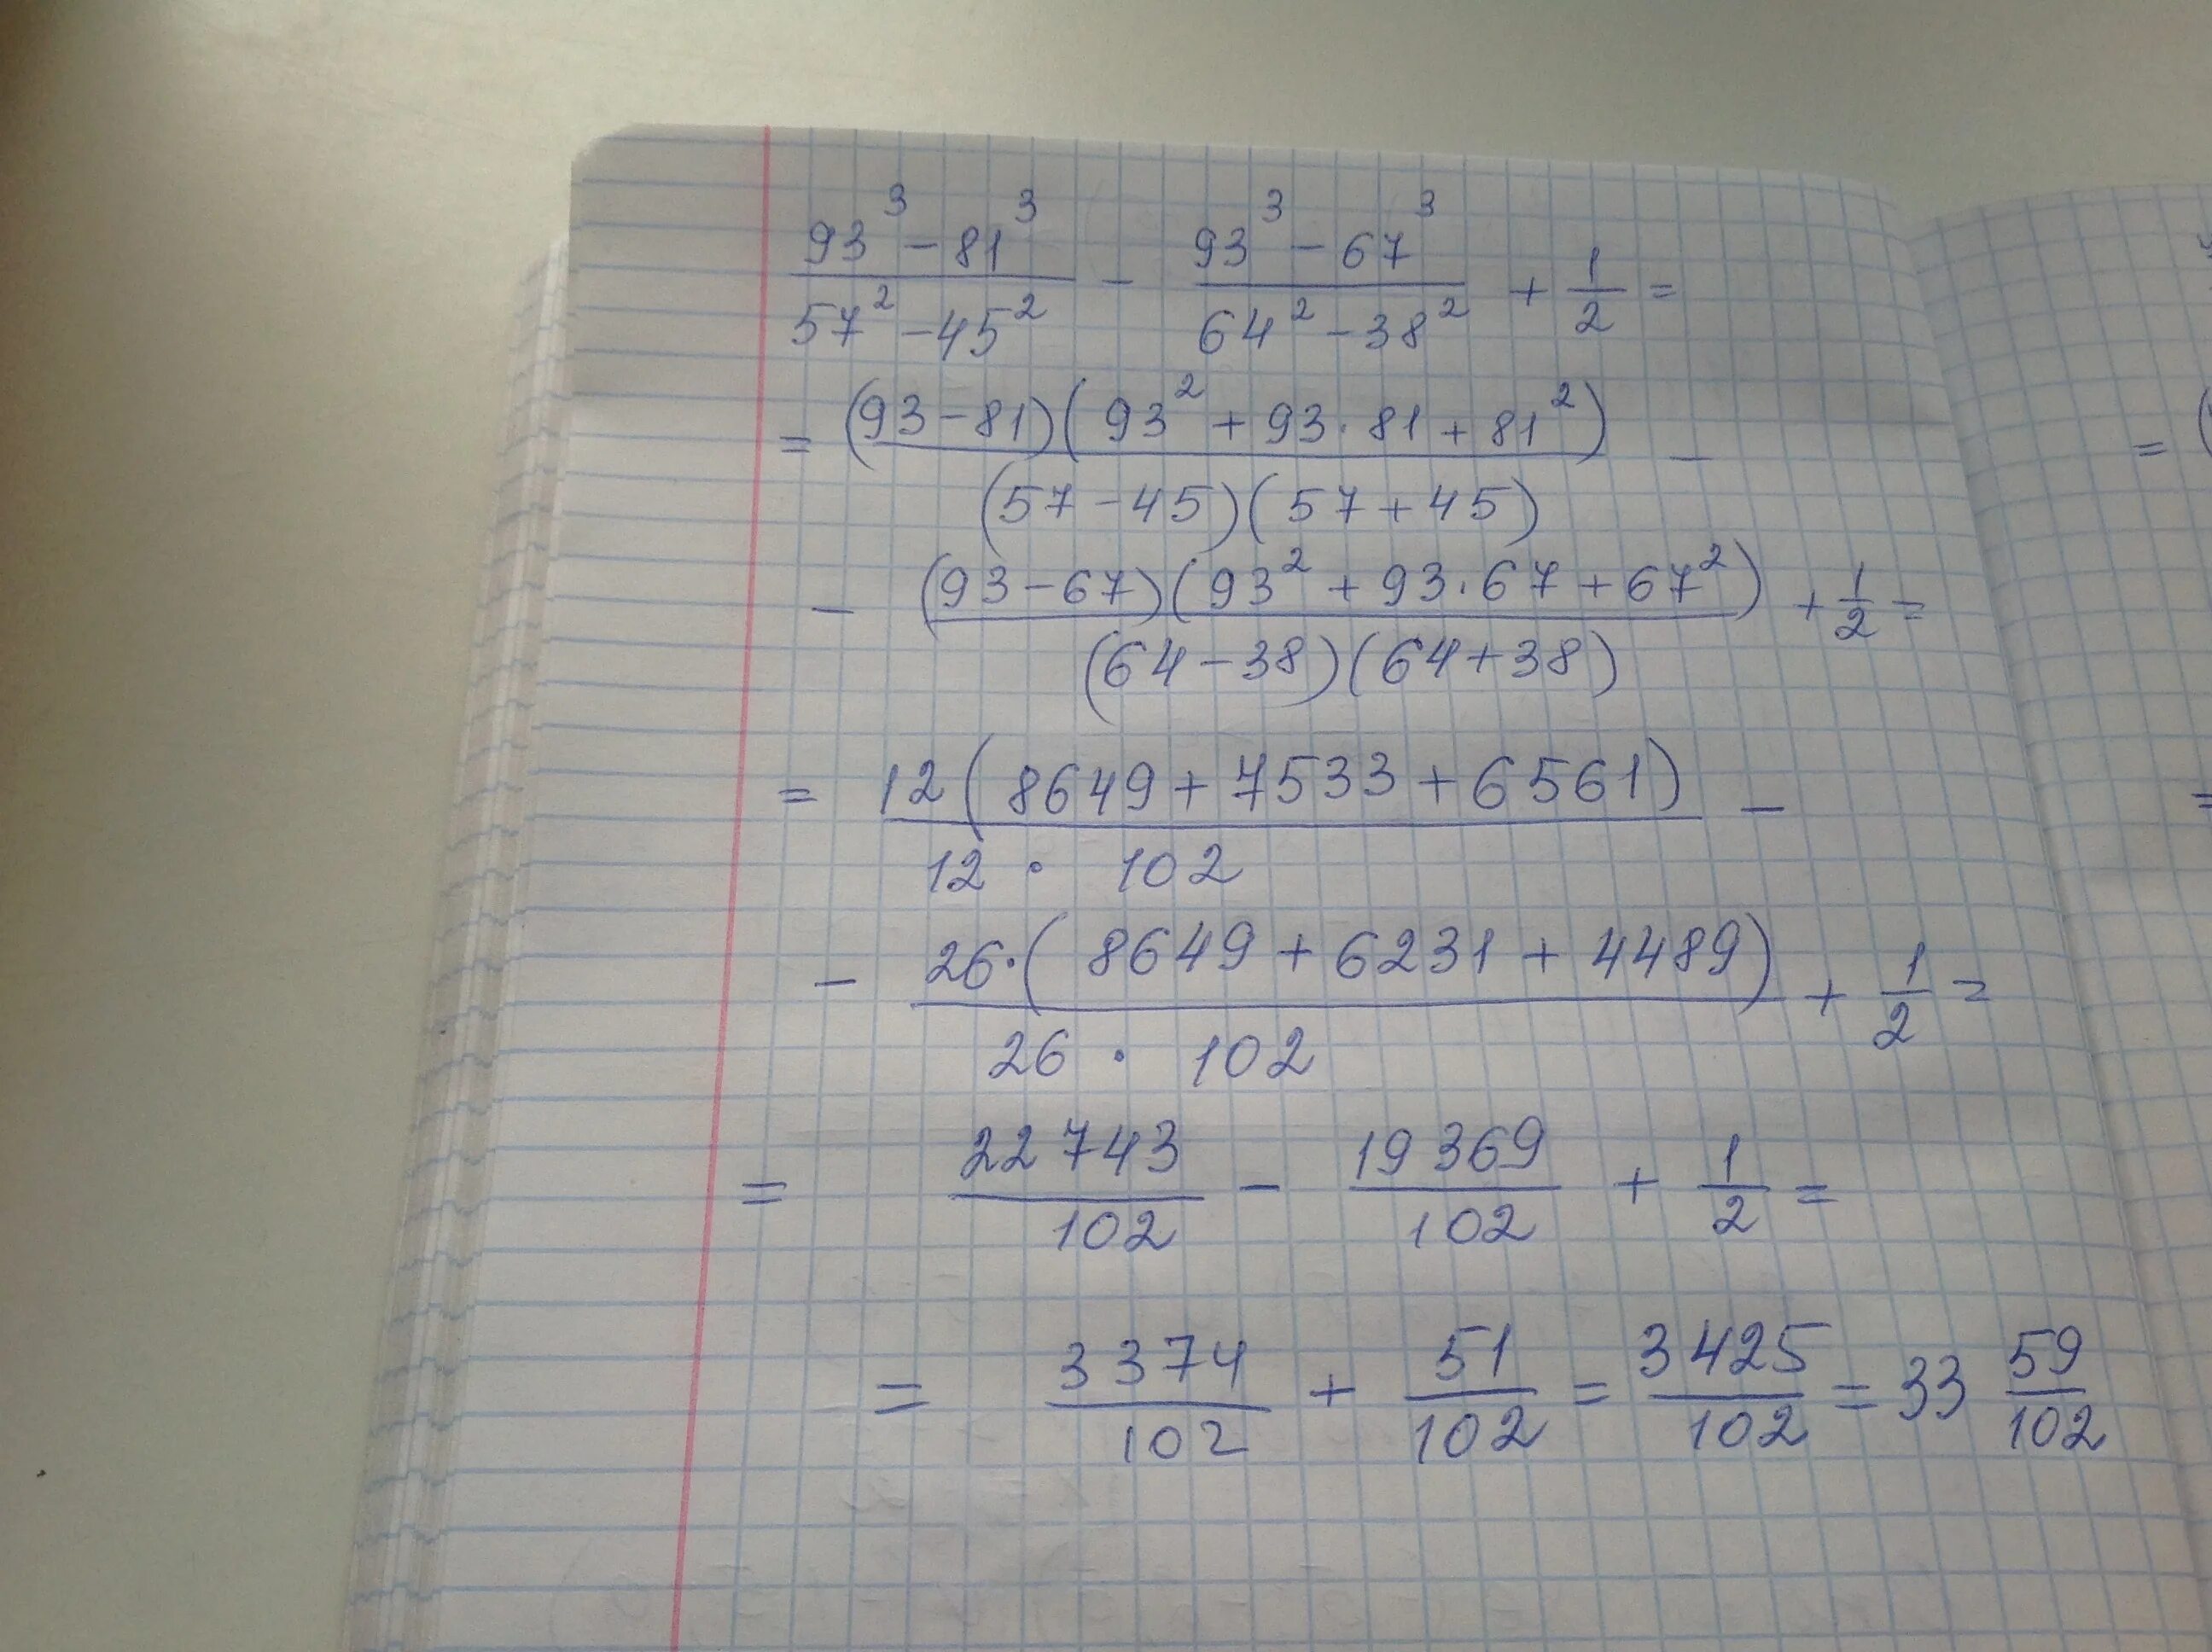 (93³ − 81³)/(57² − 45²) − (93³ − 67³)/(64² − 38²) + 1/2 =
= (93 − 81)(93² + 93·81 + 81²)/((57 − 45)(57 + 45)) −
− (93 − 67)(93² + 93·67 + 67²)/((64 − 38)(64 + 38)) + 1/2 =
= 12(8649 + 7533 + 6561)/(12 · 102) −
− 26·(8649 + 6231 + 4489)/(26 · 102) + 1/2 =
= 22743/102 − 19369/102 + 1/2 =
= 3374/102 + 51/102 = 3425/102 = 33 59/102